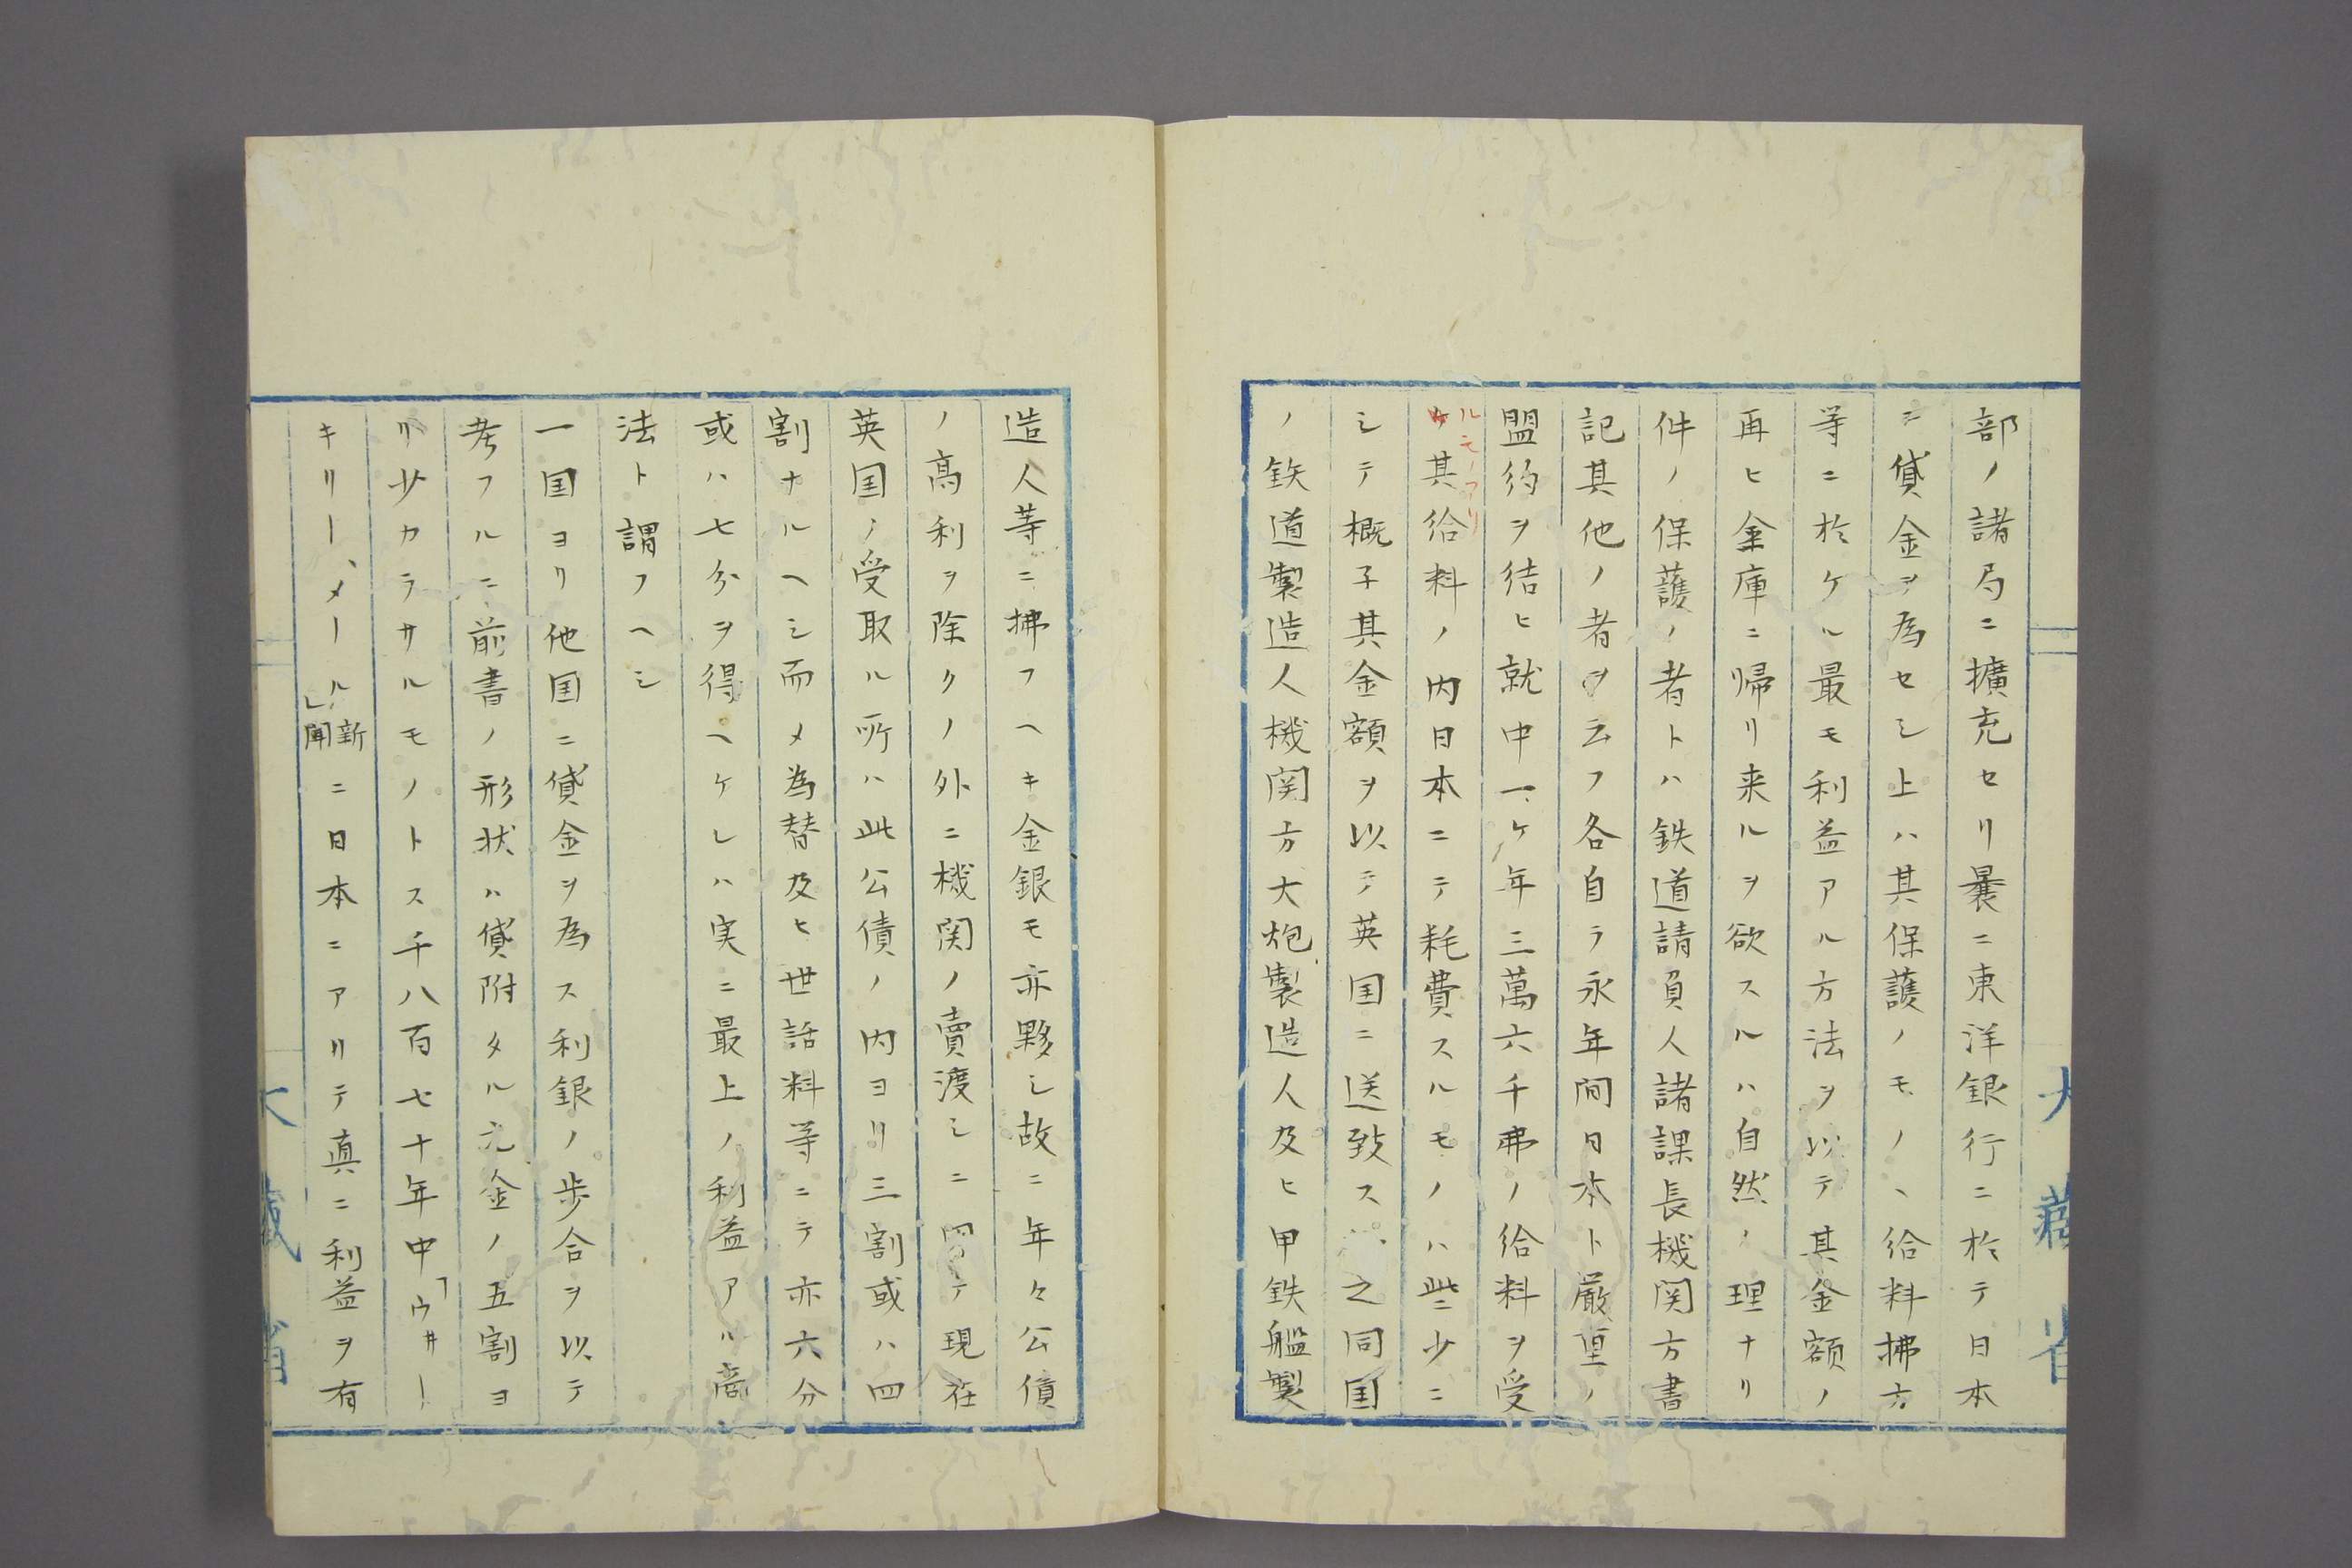 部ノ諸局ニ擴充セリ曩ニ東洋銀行ニ於テ日本
ニ貸金ヲ為セシ上ハ其保護ノモノヽ給料拂方
等ニ於ケル最モ利益アル方法ヲ以テ其金額ノ
再ヒ金庫ニ帰リ来ルヲ欲スルハ自然ノ理ナリ
件ノ保護ノ者トハ鉄道請負人諸課長機関方書
記其他ノ者ヲ云フ各自ラ永年間日本ト厳重ノ
盟約ヲ結ヒ就中一ケ年三萬六千弗ノ給料ヲ受
ルモノアリ
ケ其給料ノ内日本ニテ耗費スルモノハ些少ニ
シテ概子其金額ヲ以テ英国ニ送致ス之同国
ノ鉄道製造人機関方大炮製造人及ヒ甲鉄艦製
大藏省
造人等ニ拂フヘキ金銀モ亦夥シ故ニ年々公債
ノ高利ヲ除クノ外ニ機関ノ賣渡シニ四テ現在
英国ノ受取ル所ハ此公債ノ内ヨリ三割或ハ四
割ナルヘシ而メ為替及ヒ世話料等ニテ亦六分
或ハ七分ヲ得ヘケレハ実ニ最上ノ利益アル商
法ト謂フヘシ
一国ヨリ他国ニ貸金ヲ為ス利銀ノ歩合ヲ以テ
考フルニ前書ノ形状ハ貸附タル元金ノ五割ヨ
リ少カラサルモノトス千八百七十年中「ウ井ー
キリー、メール」新聞ニ日本ニアリテ真ニ利益ヲ有
大藏省